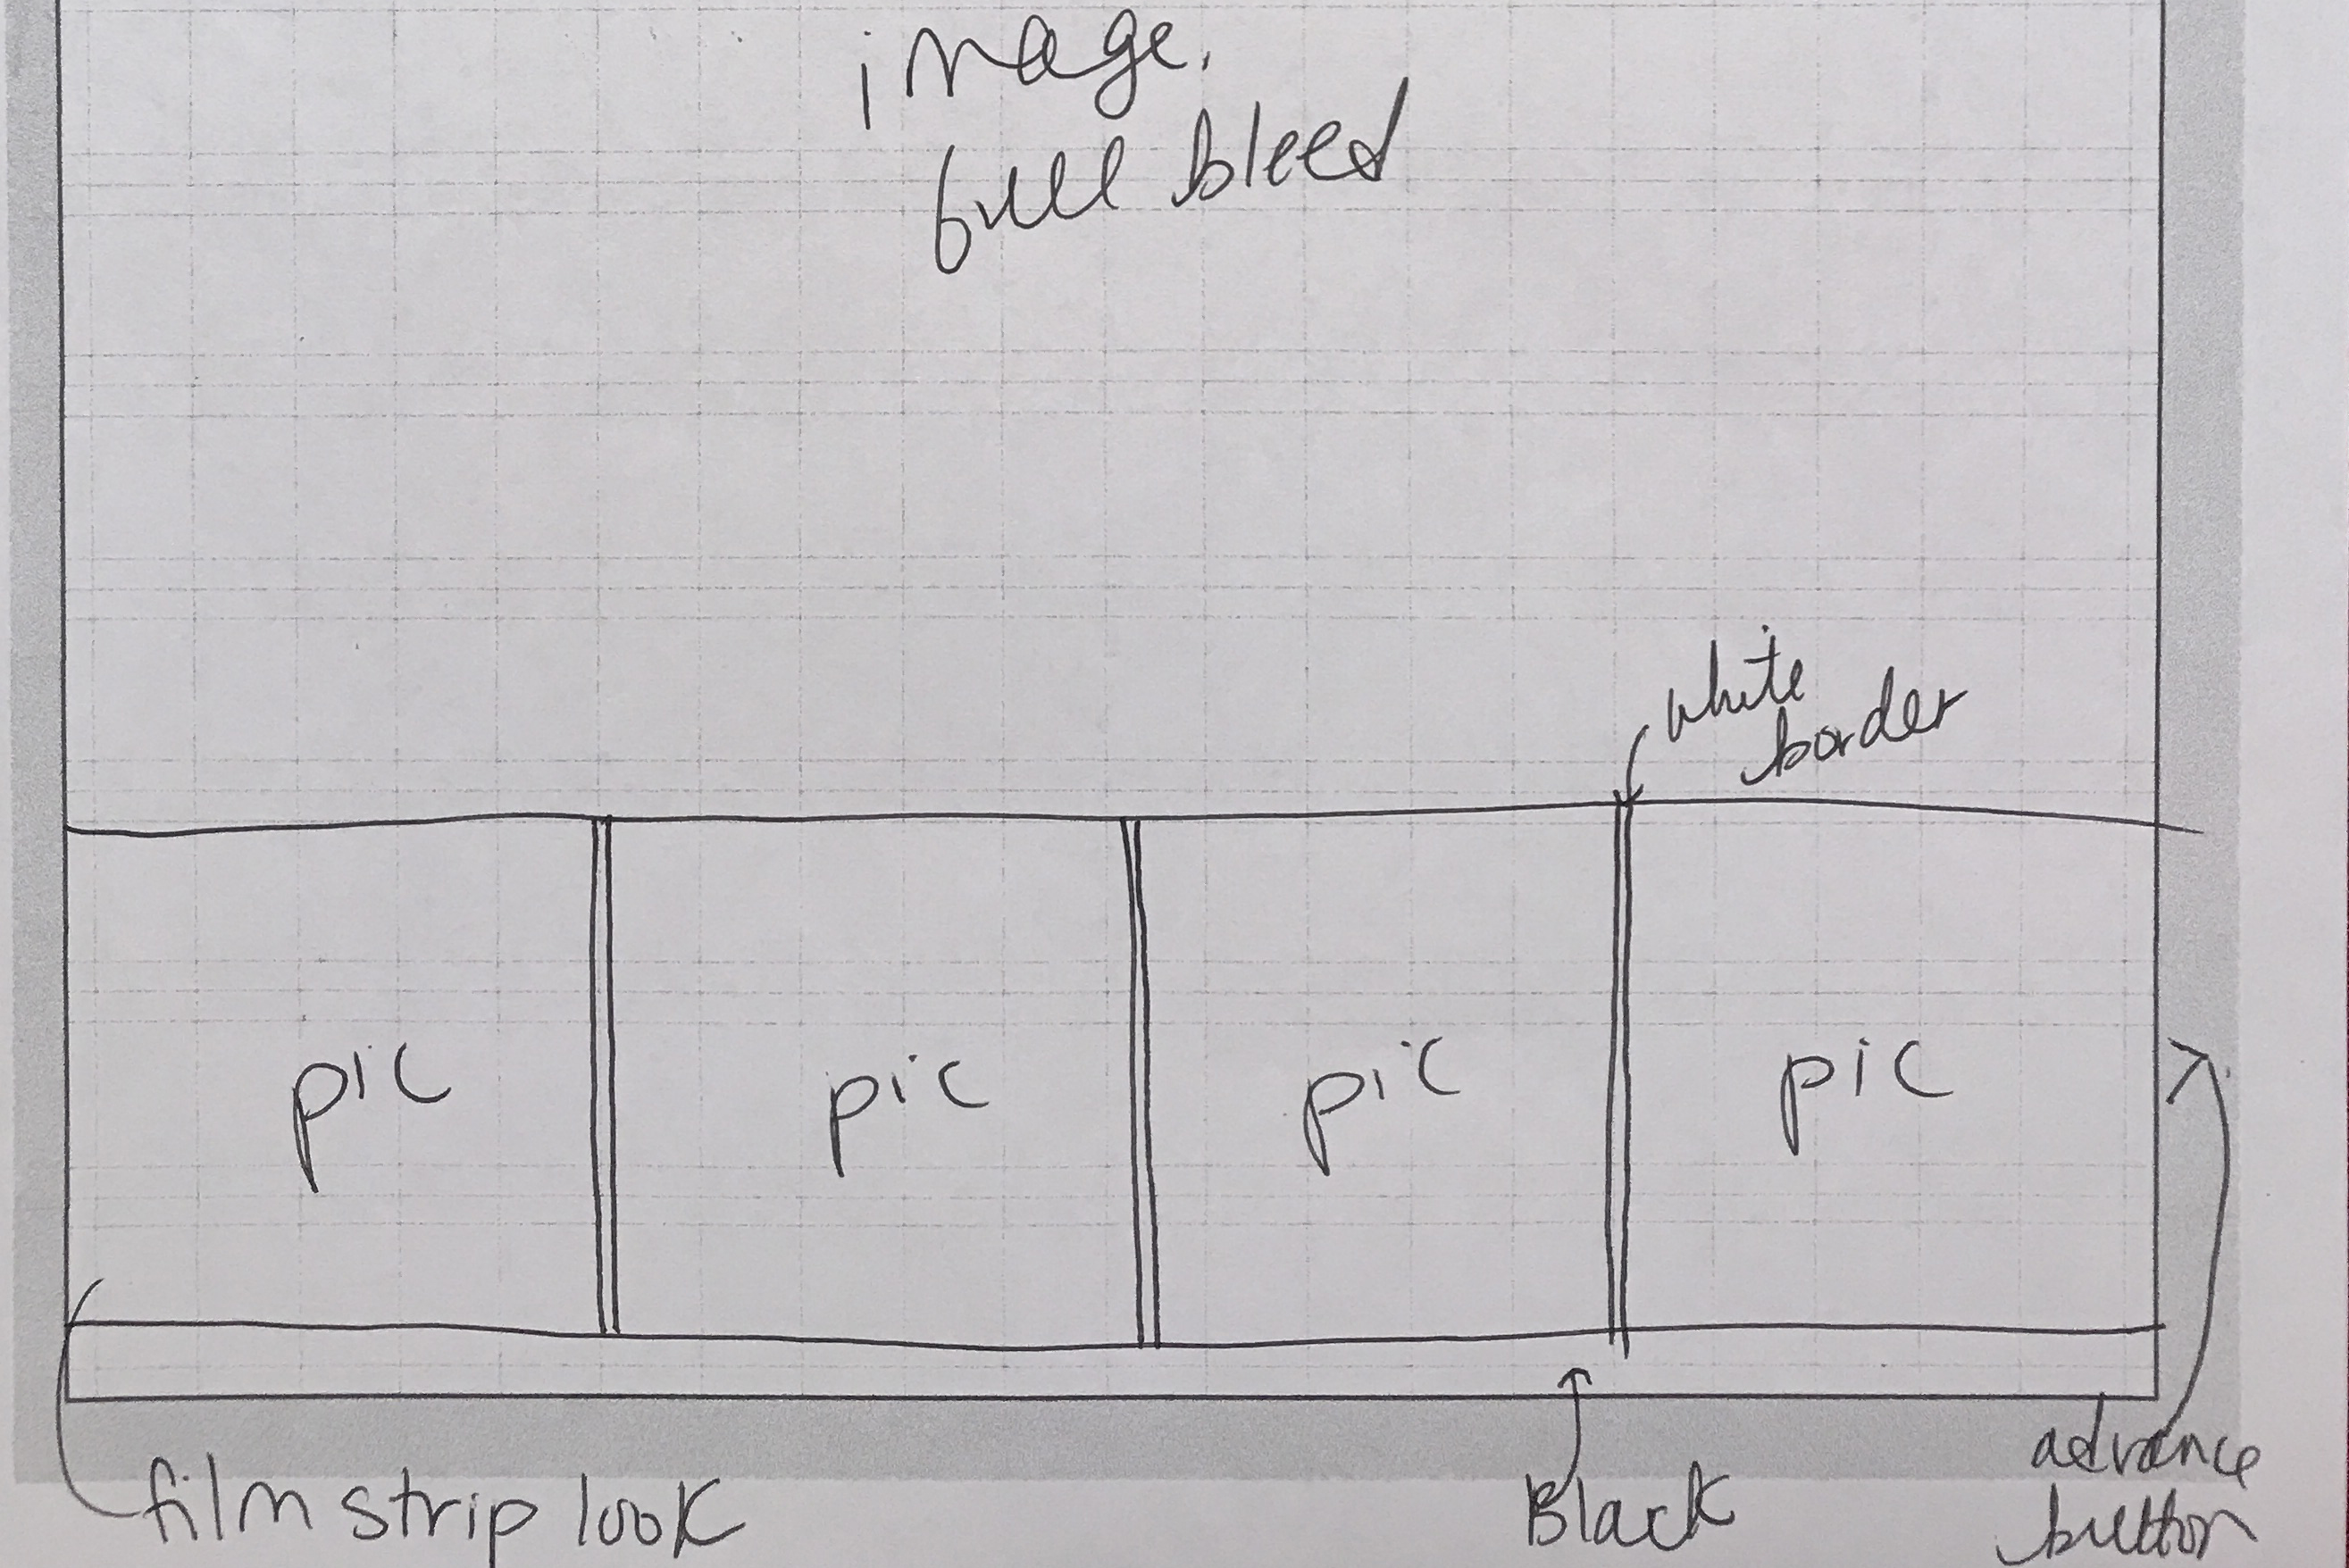 image.
full bleed
white
border
pic
pic
pic
pic
film strip look
Black
advance
button